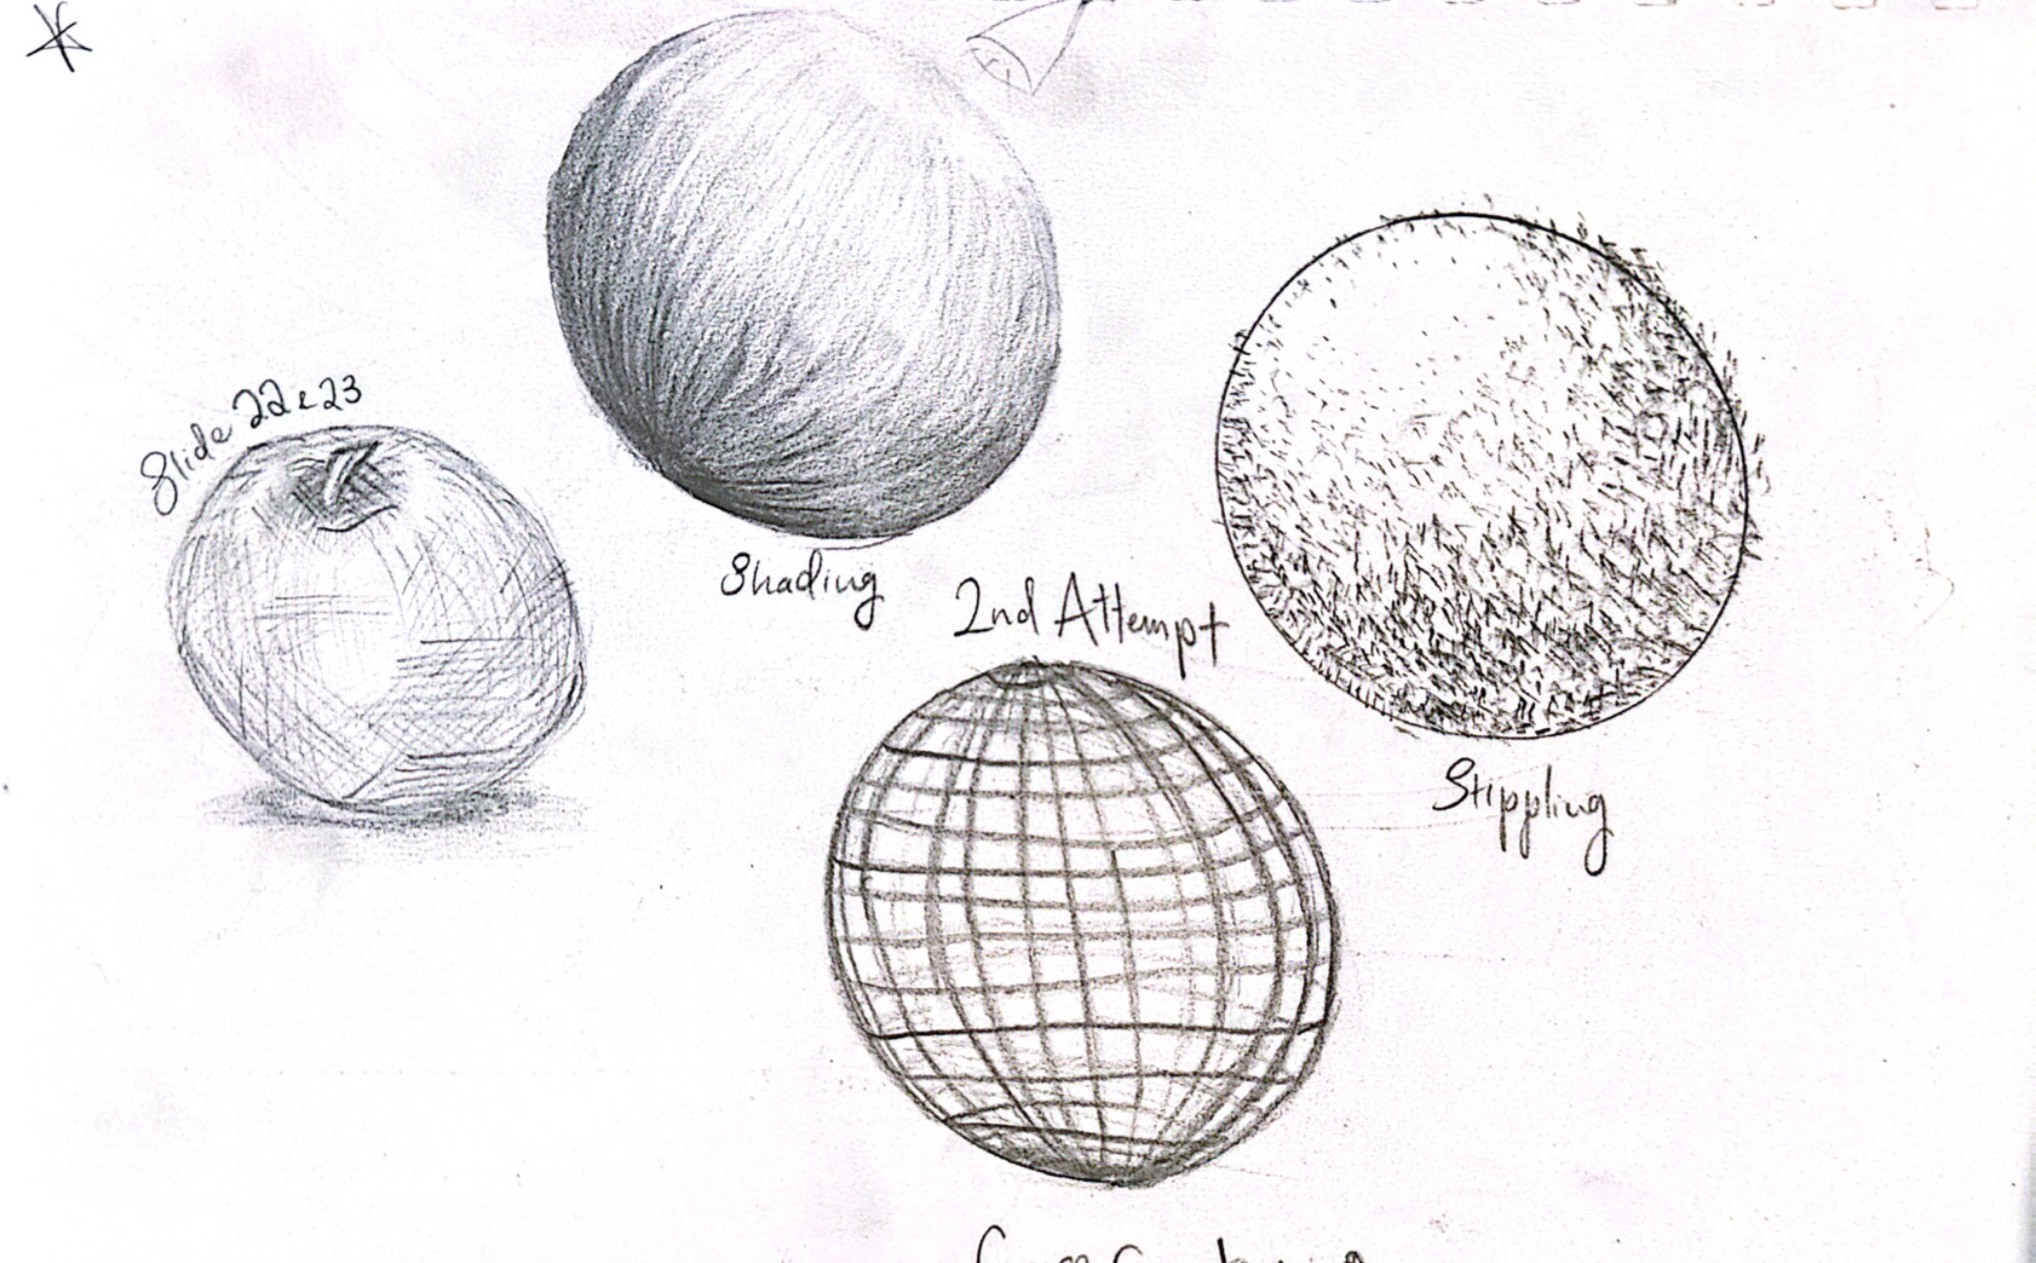 Slide 22 & 23
Shading
2nd Attempt
Stippling